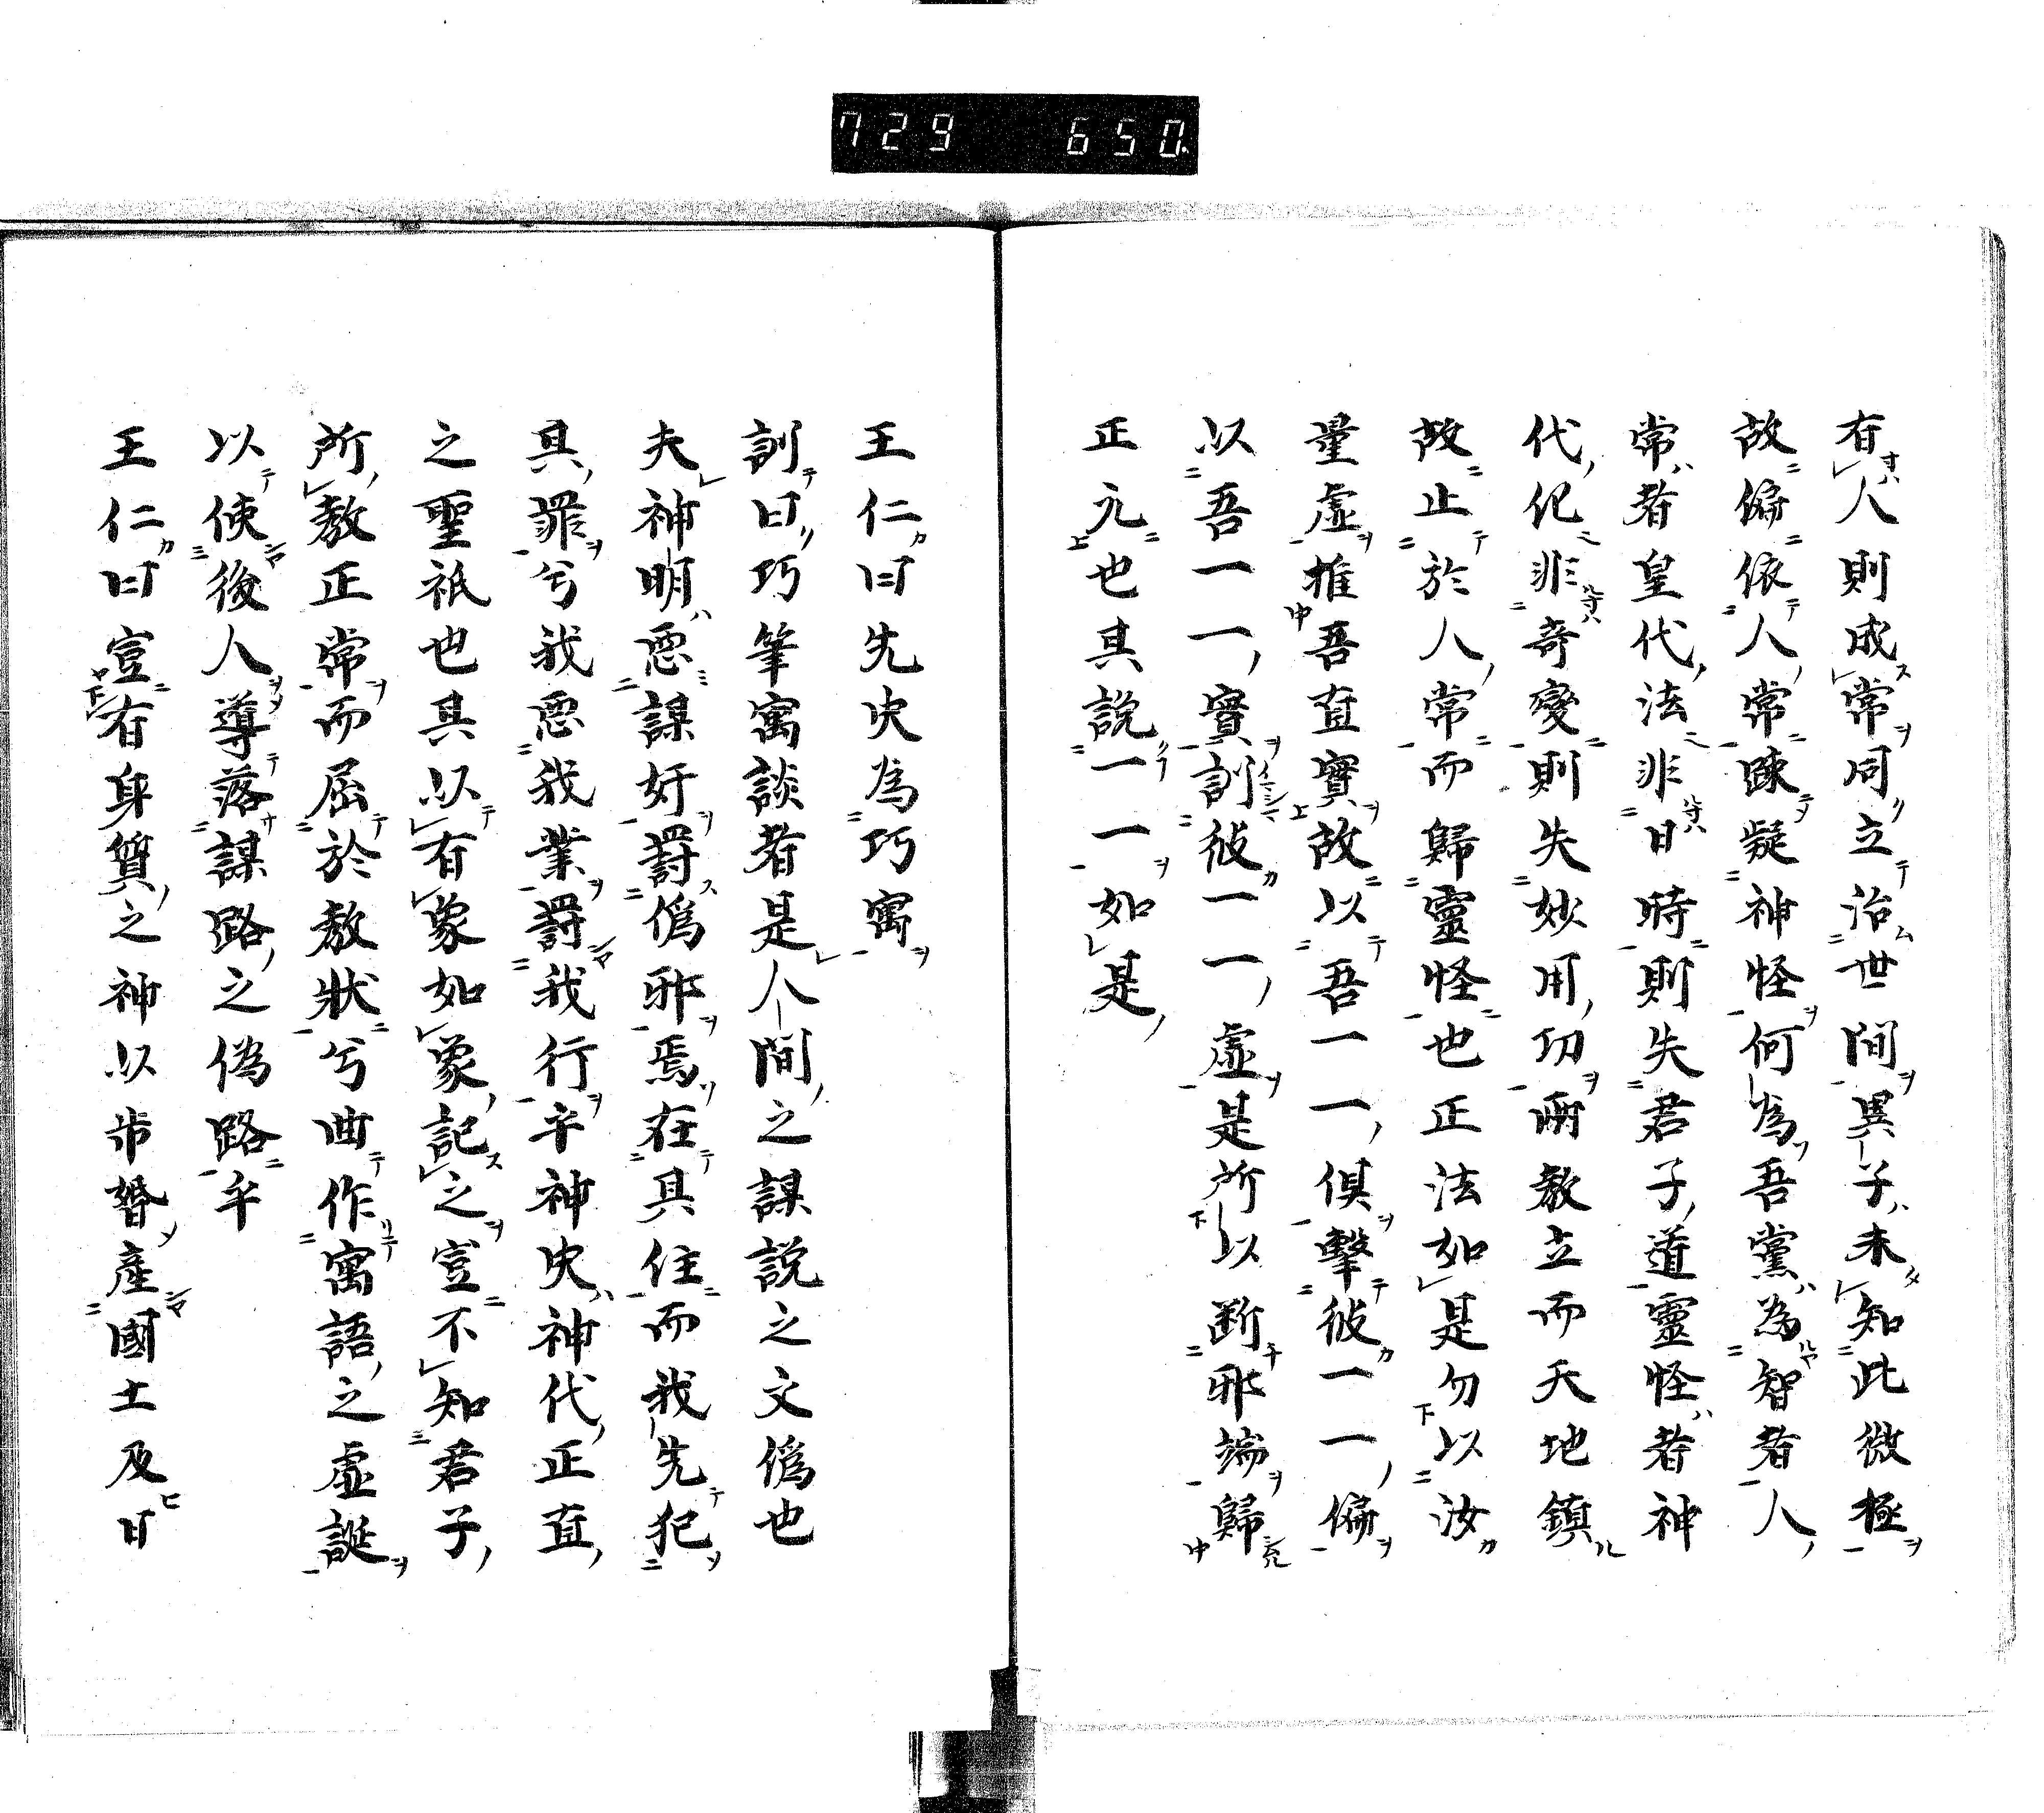 729 650
有人則成常同立治世間異子未知此微極
故偏依人常疎疑神怪何為吾黨為智者人
常者皇代法非日時則失君子道靈怪者神
代化非奇變則失妙用功兩教立而天地鎮
故止於人常而歸靈怪也正法如是勿以汝
量虛推吾直實故以吾一一俱擊彼一一偏
以吾一一實訓彼一一虛是所以断邪端歸
正元也其說一一如是
王仁曰先史為巧寓
訓曰巧筆寓談者是人間之謀說之文僞也
夫神明惡謀奸罸僞邪焉在具住而我先犯
其罪兮我惡我業罸我行乎神史神代正直
之聖祇也具以有象如象記之豈不知君子
所教正常而屈於教狀兮曲作寓語之虛誕
以使後人導落謀路之偽路乎
王仁曰豈有身質之神以步婚產國土及日